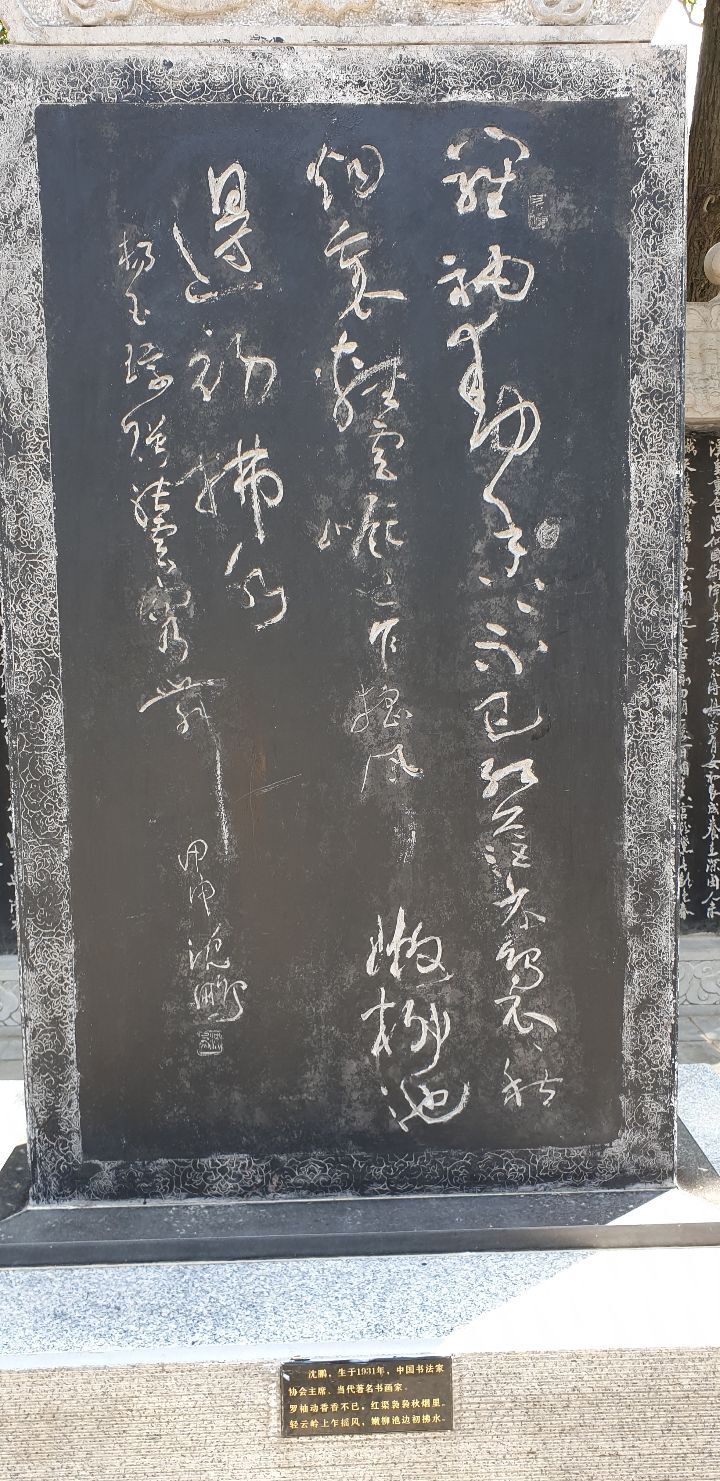 羅袖動香香不已紅蕖裊裊秋
烟裏輕雲嶺上乍摇風嫩柳池
邊初拂水
杨玉環贈張雲容舞
甲申沈鵬
沈鹏，生于1931年，中国书法家
协会主席、当代著名书画家。
罗袖动香香不已，红渠袅袅秋烟里。
轻云岭上乍摇风，嫩柳池边初拂水。